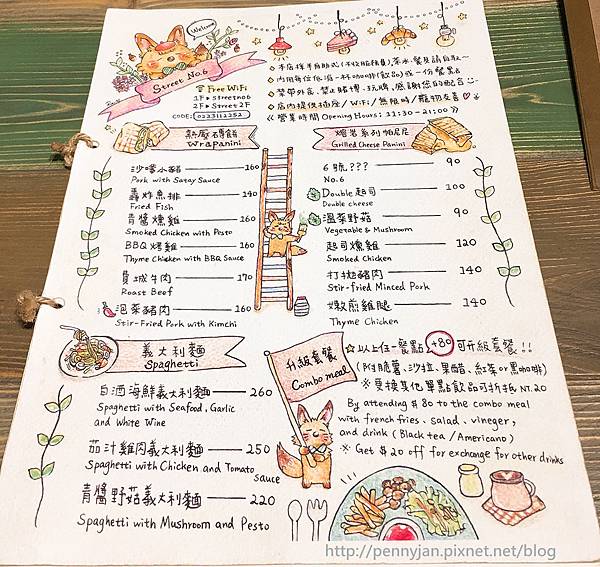 Welcome
Street No.6
Free WiFi
1F Streetno6
2F Street 2F
CODE: 0223111252
※本店採半自助式(不收服務費)茶水、餐具請自取~
※內用每位低消一杯咖啡(飲品)或一份餐點
※禁帶外食、禁止賭博、玩牌,感謝您的配合
※店內提供插座/WiFi/無限時/寵物友善
《營業時間 Opening Hours: 11:30-21:00》
熱壓薄餅
Wrapanini
沙嗲小豬 160
Pork with Satay Sauce
轟炸魚排 140
Fried Fish
青醬燻雞 160
Smoked Chicken with Pesto
BBQ烤雞 160
Thyme Chicken with BBQ Sauce
費城牛肉 170
Roast Beef
泡菜豬肉 160
Stir-Fried Pork with Kimchi
焗岩系列帕尼尼
Grilled Cheese Panini
6號??? 90
No.6
Double起司 100
Double cheese
溫菜野菇 90
Vegetable & Mushroom
起司燻雞 120
Smoked Chicken
打拋豬肉 140
Stir-fried Minced Pork
嫩煎雞腿 140
Thyme Chicken
義大利麵
Spaghetti
白酒海鮮義大利麵 260
Spaghetti with Seafood, Garlic
and White Wine
茄汁雞肉義大利麵 250
Spaghetti with Chicken and Tomato
Sauce
青醬野菇義大利麵 220
Spaghetti with Mushroom and Pesto
升級套餐
Combo meal
☆以上任一餐點+80可升級套餐!!
(附脆薯、沙拉、果醋、紅茶or黑咖啡)
※更換其他單點飲品可折抵NT.20
By attending $80 to the combo meal
with french fries、salad、vineger,
and drink (Black tea / Americano)
※ Get $20 off for exchange for other drinks
http://pennyjan.pixnet.net/blog